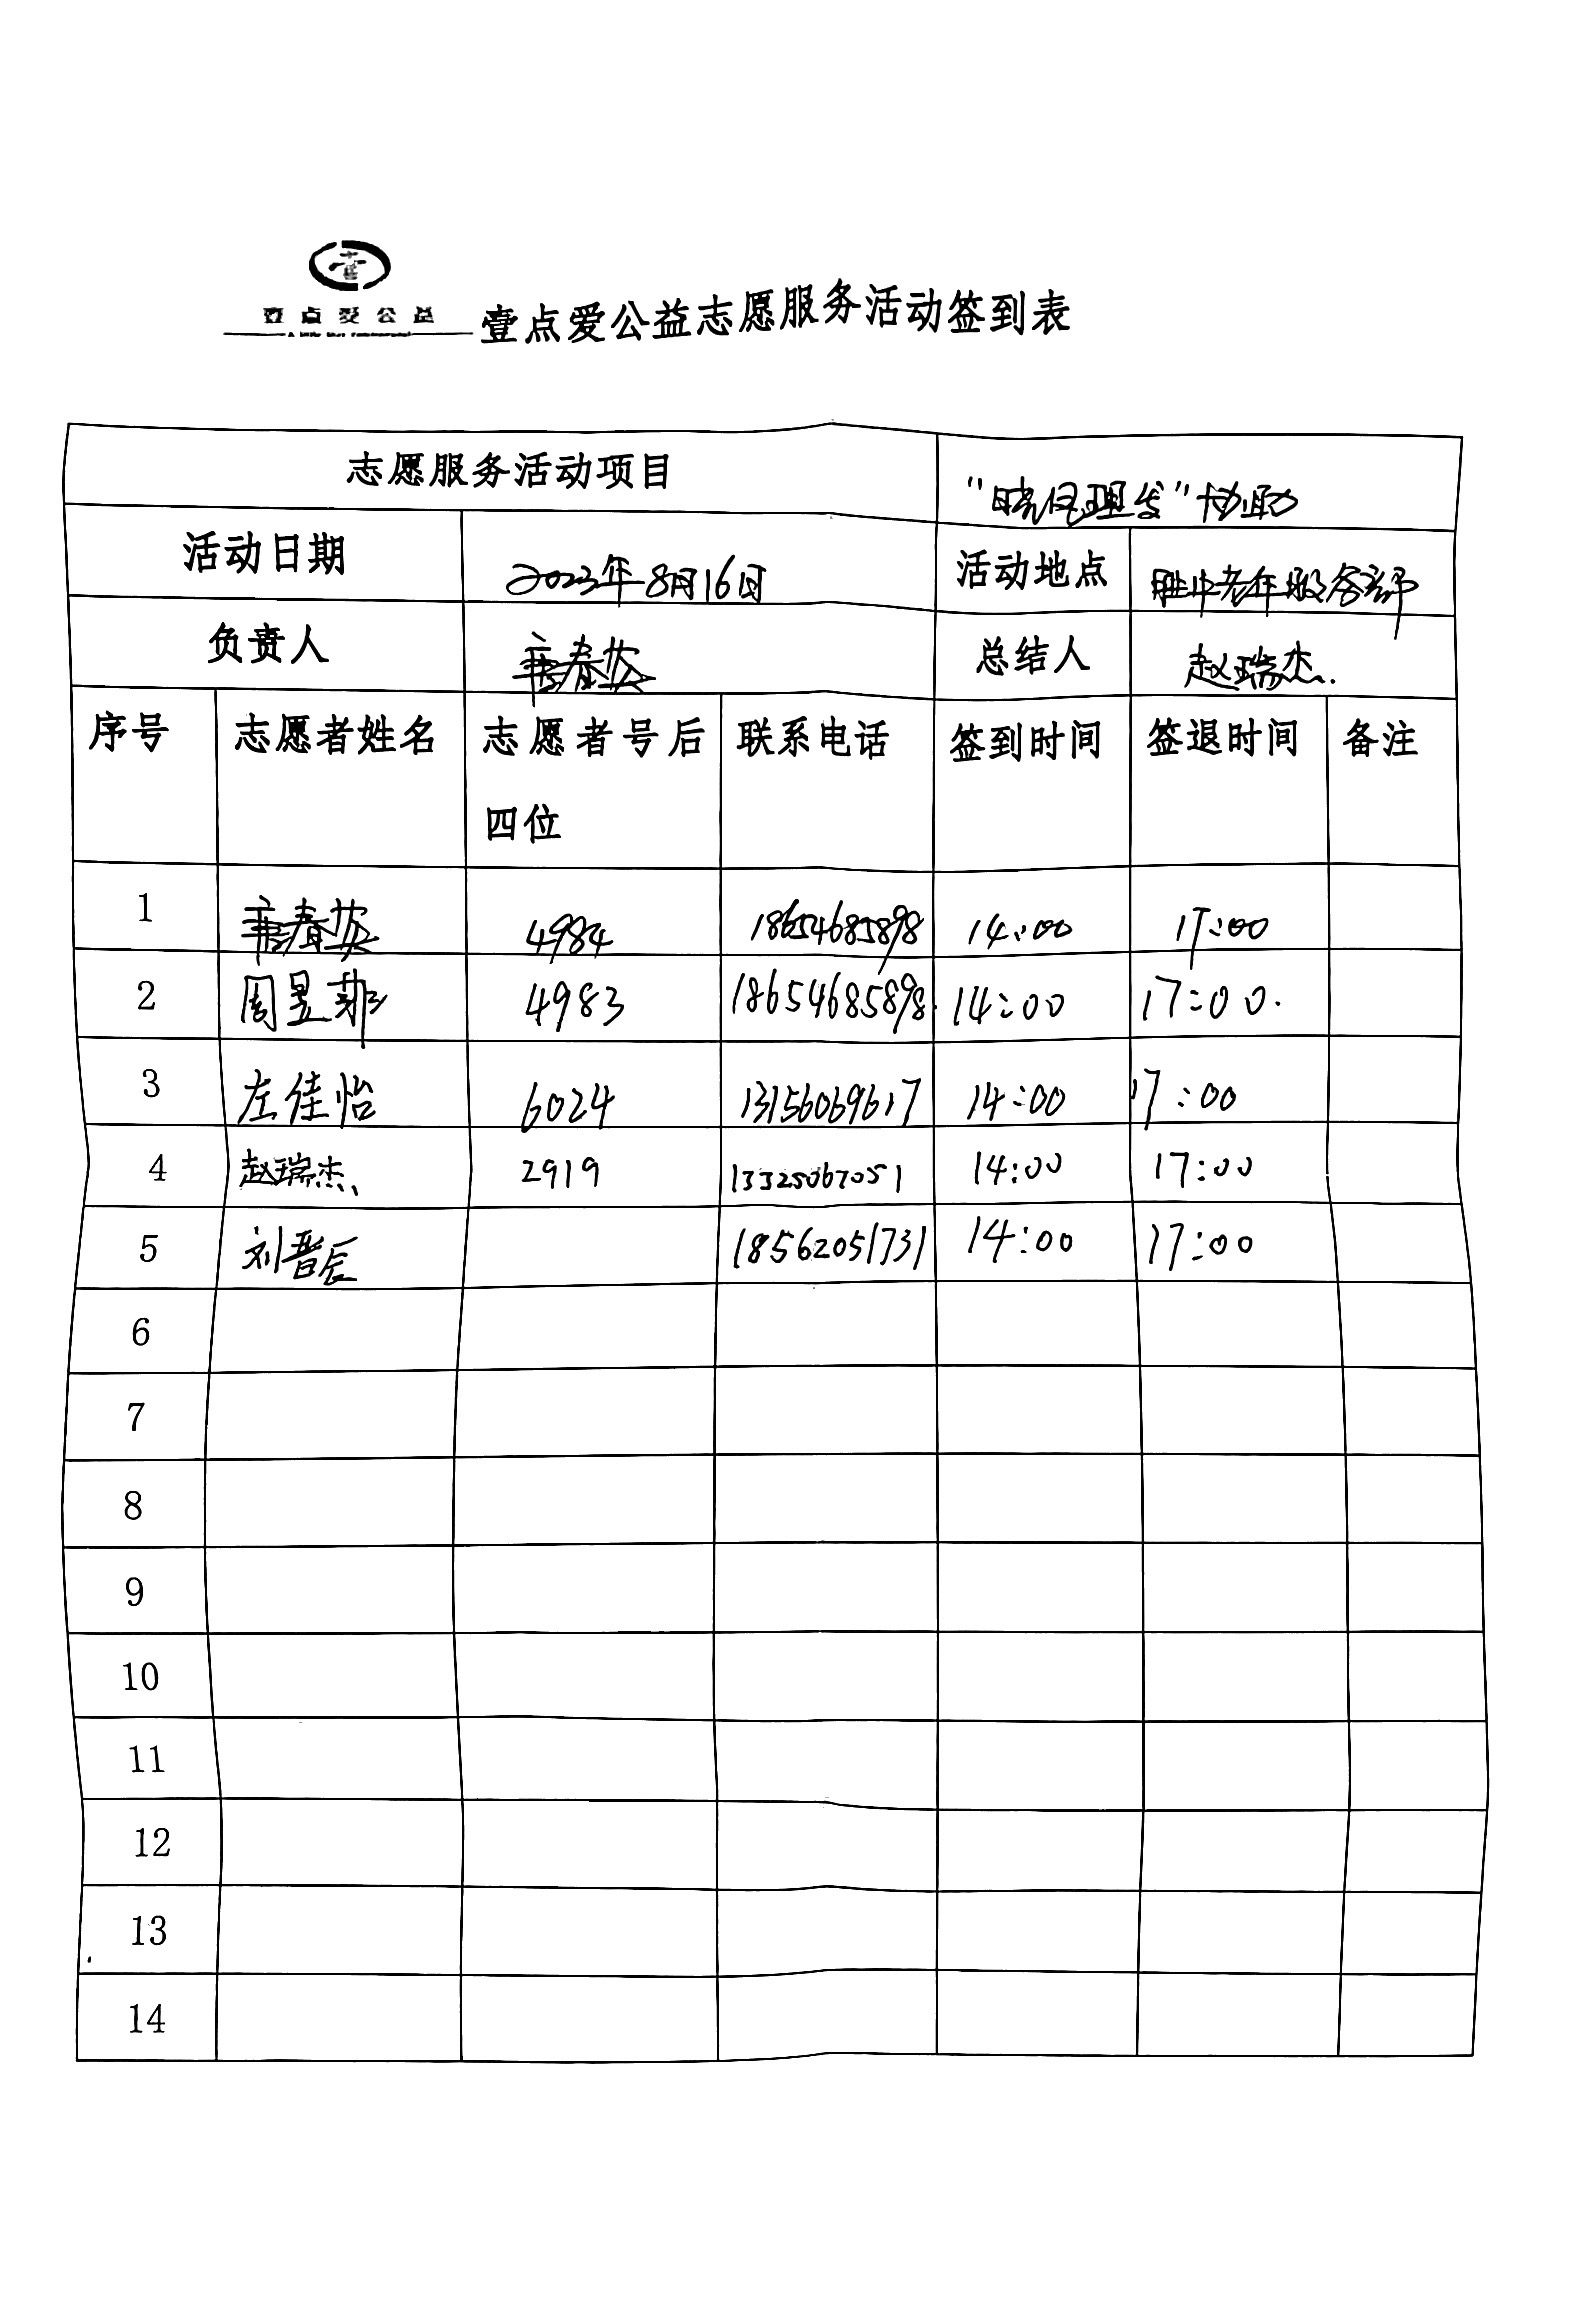 壹点爱公益
壹点爱公益志愿服务活动签到表
志愿服务活动项目 “晓凡理发”协助
活动日期 2023年8月16日 活动地点 胜中老年服务部
负责人 春英 总结人 赵瑞杰.
序号 志愿者姓名 志愿者号后四位 联系电话 签到时间 签退时间 备注
1 春英 4984 18654685898 14:00 17:00
2 周昱那 4983 18654685898. 14:00 17:00.
3 左佳怡 6024 13156069617 14:00 17:00
4 赵瑞杰、 2919 13325067051 14:00 17:00
5 刘晋辰 18562051731 14:00 17:00
6
7
8
9
10
11
12
13
14